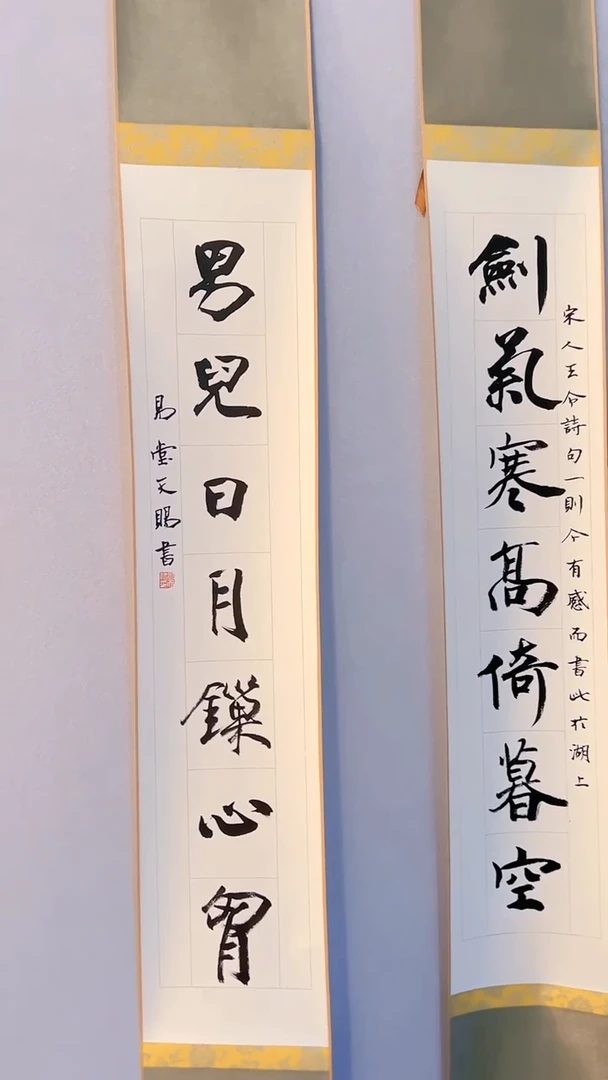 宋人王令詩句一則今有感而書此扵湖上
劍氣寒高倚暮空
男兒日月鏁心胷
易堂天賜書